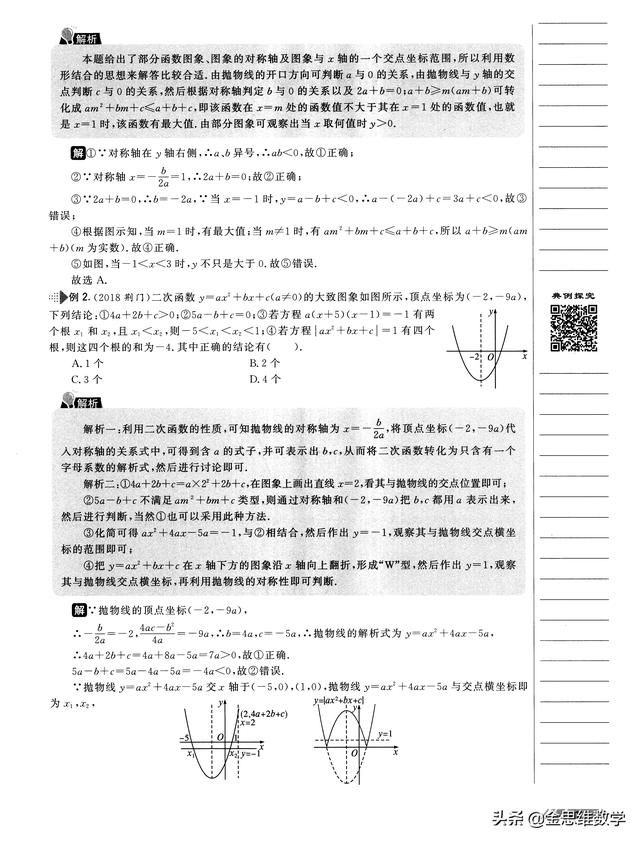 解析
本题给出了部分函数图象、图象的对称轴及图象与 x 轴的一个交点坐标范围,所以利用数
形结合的思想来解答比较合适.由抛物线的开口方向可判断 a 与 0 的关系,由抛物线与 y 轴的交
点判断 c 与 0 的关系,然后根据对称轴判定 b 与 0 的关系以及 2a+b=0;a+b≥m(am+b)可转
化成 am²+bm+c≤a+b+c,即该函数在 x=m 处的函数值不大于其在 x=1 处的函数值,也就
是 x=1 时,该函数有最大值.由部分图象可观察出当 x 取何值时 y>0.
解 ①∵对称轴在 y 轴右侧,∴a、b 异号,∴ab<0,故①正确;
②∵对称轴 x=-b/2a=1,∴2a+b=0;故②正确;
③∵2a+b=0,∴b=-2a,∵当 x=-1 时,y=a-b+c<0,∴a-(-2a)+c=3a+c<0,故③
错误;
④根据图示知,当 m=1 时,有最大值;当 m≠1 时,有 am²+bm+c≤a+b+c,所以 a+b≥m(am
+b)(m 为实数).故④正确.
⑤如图,当-1<x<3 时,y 不只是大于 0.故⑤错误.
故选 A.
例 2.(2018 荆门)二次函数 y=ax²+bx+c(a≠0)的大致图象如图所示,顶点坐标为(-2,-9a),
下列结论:①4a+2b+c>0;②5a-b+c=0;③若方程 a(x+5)(x-1)=-1 有两
个根 x₁ 和 x₂,且 x₁<x₂,则-5<x₁<x₂<1;④若方程|ax²+bx+c|=1 有四个
根,则这四个根的和为-4.其中正确的结论有( ).
A.1 个 B.2 个
C.3 个 D.4 个
y
-2 O x
典例探究
解析
解析一:利用二次函数的性质,可知抛物线的对称轴为 x=-b/2a,将顶点坐标(-2,-9a)代
入对称轴的关系式中,可得到含 a 的式子,并可表示出 b,c,从而将二次函数转化为只含有一个
字母系数的解析式,然后进行讨论即可.
解析二:①4a+2b+c=a×2²+2b+c,在图象上画出直线 x=2,看其与抛物线的交点位置即可;
②5a-b+c 不满足 am²+bm+c 类型,则通过对称轴和(-2,-9a)把 b,c 都用 a 表示出来,
然后进行判断,当然①也可以采用此种方法.
③化简可得 ax²+4ax-5a=-1,与②相结合,然后作出 y=-1,观察其与抛物线交点横坐
标的范围即可;
④把 y=ax²+bx+c 在 x 轴下方的图象沿 x 轴向上翻折,形成“W”型,然后作出 y=1,观察
其与抛物线交点横坐标,再利用抛物线的对称性即可判断.
解 ∵抛物线的顶点坐标(-2,-9a),
∴-b/2a=-2,(4ac-b²)/4a=-9a,∴b=4a,c=-5a,∴抛物线的解析式为 y=ax²+4ax-5a,
∴4a+2b+c=4a+8a-5a=7a>0,故①正确.
5a-b+c=5a-4a-5a=-4a<0,故②错误.
∵抛物线 y=ax²+4ax-5a 交 x 轴于(-5,0),(1,0),抛物线 y=ax²+4ax-5a 与交点横坐标即
为 x₁,x₂,
y
(2,4a+2b+c)
x=2
-5 O 1 x
x₁ x₂ y=-1
y=|ax²+bx+c|
y
y=1
O x
头条 @金思维数学